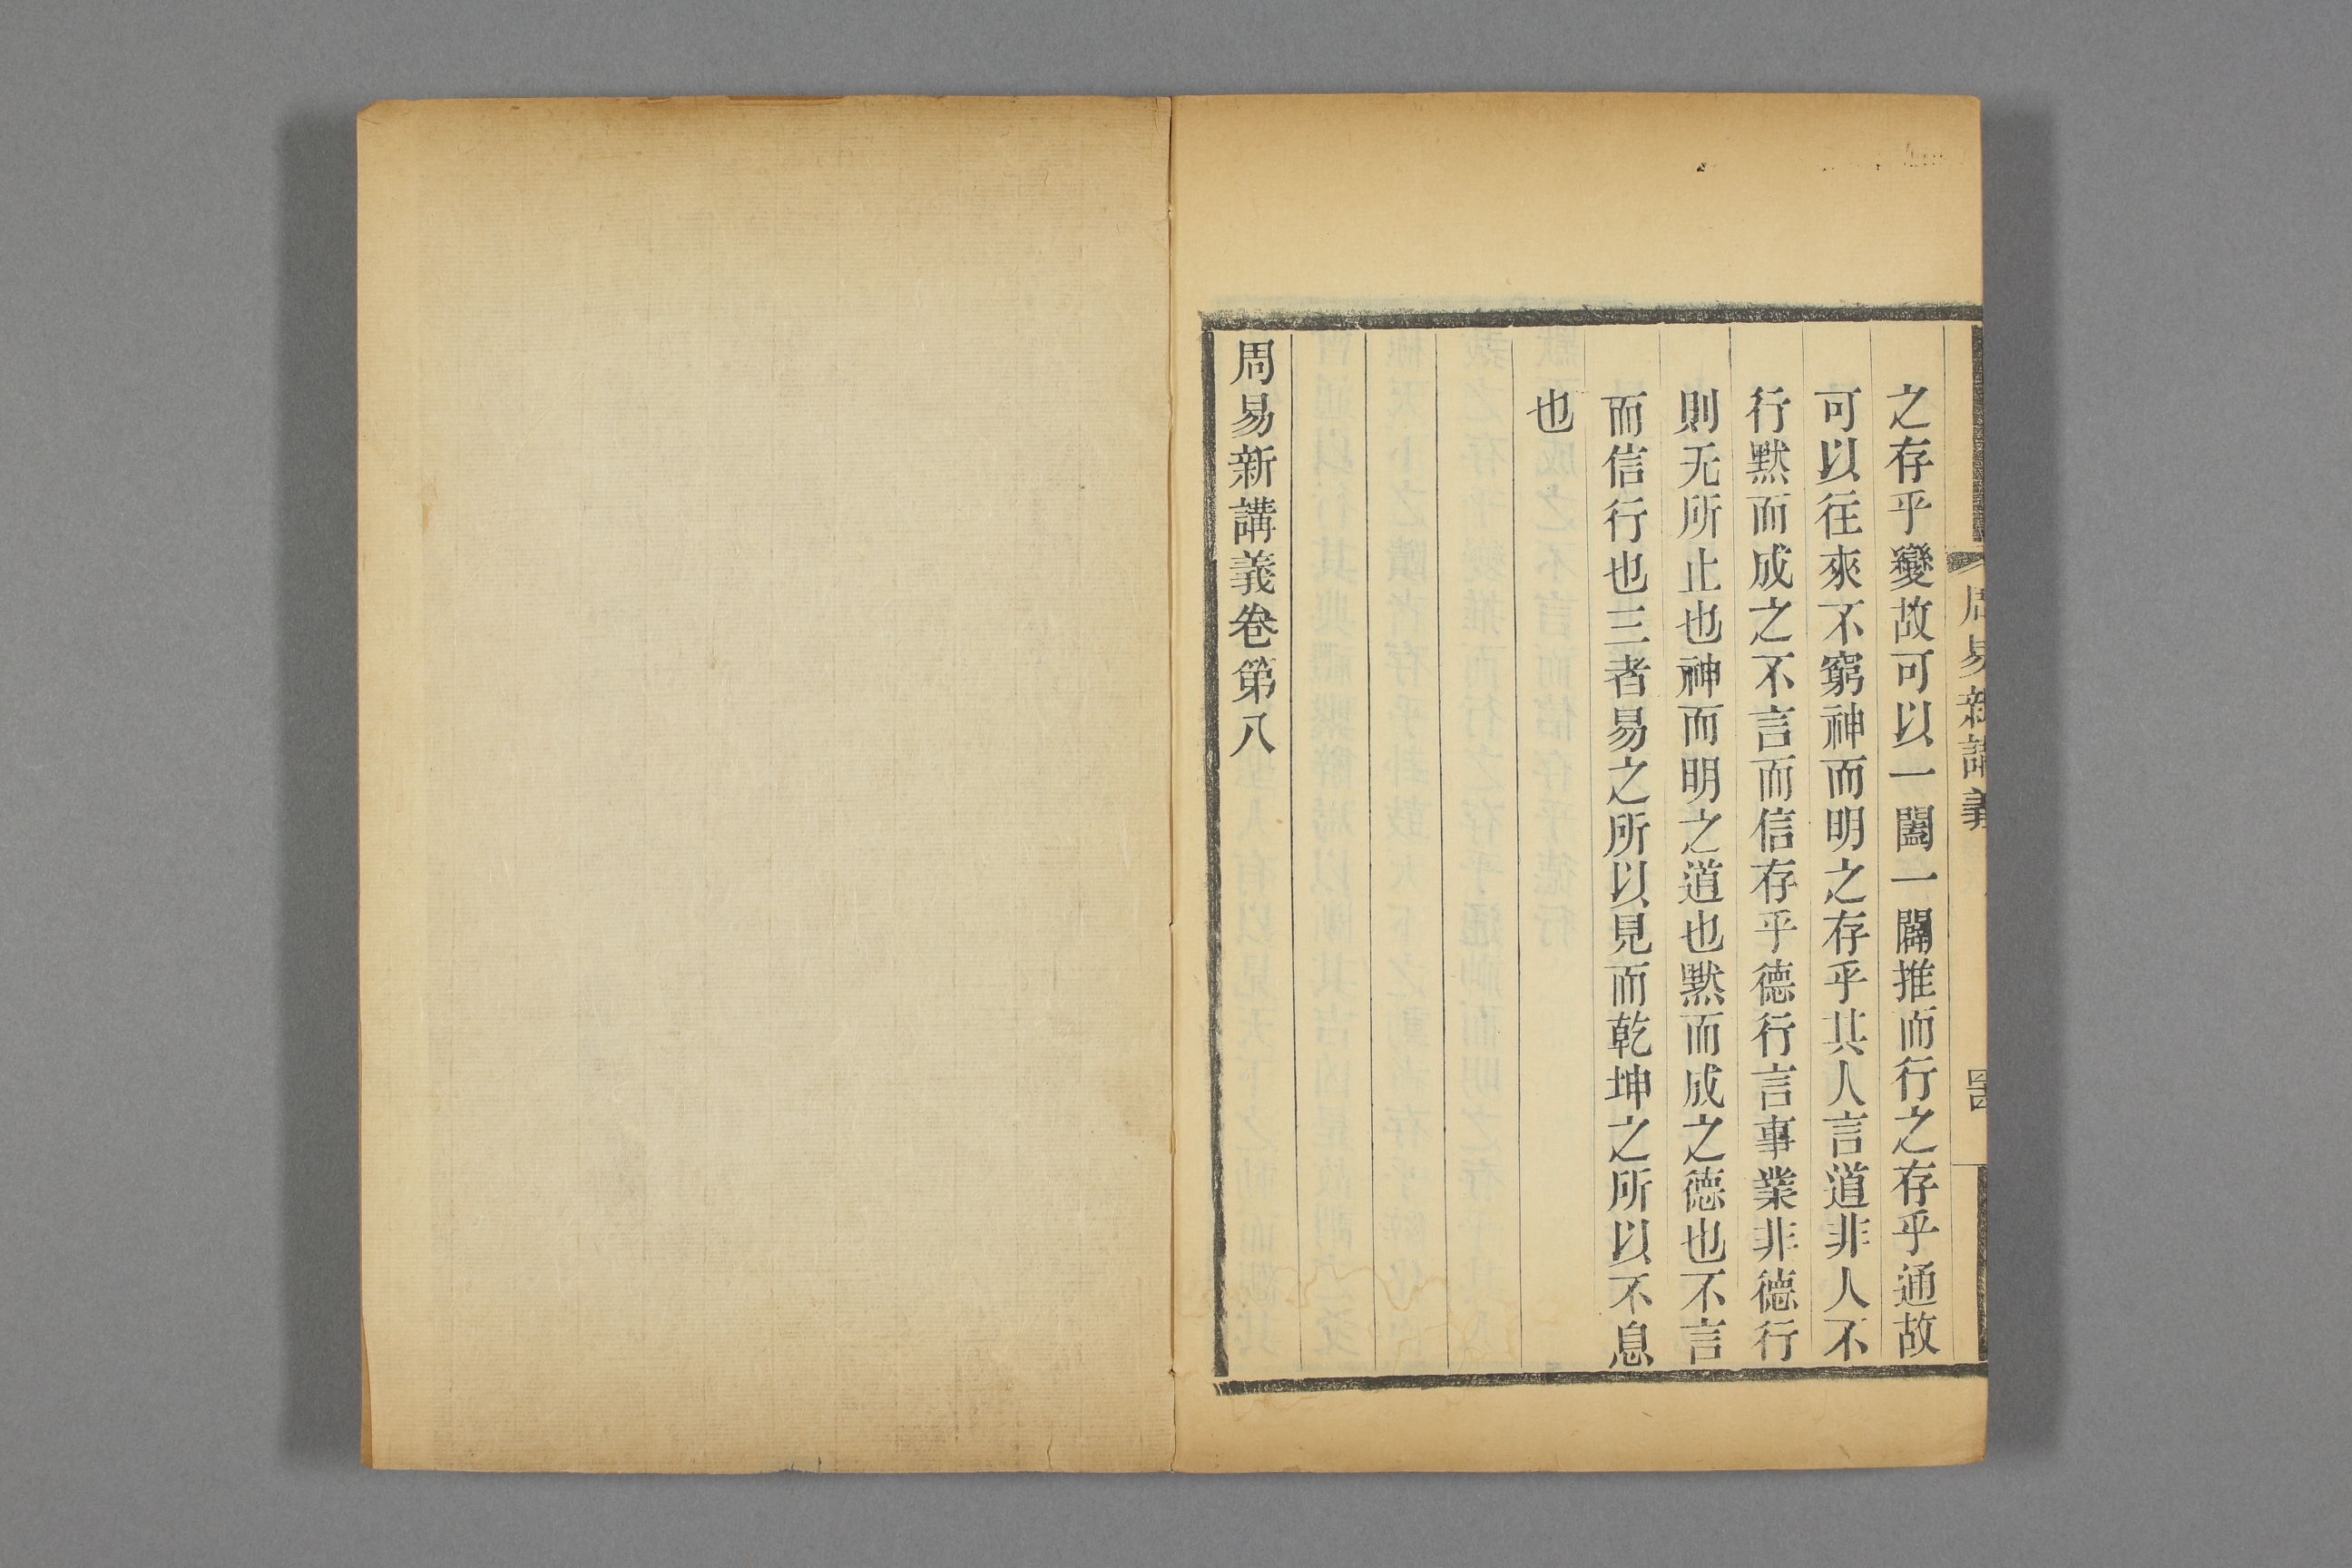 周易新講義
之存乎變故可以一闔一闢推而行之存乎通故
可以往來不窮神而明之存乎其人言道非人不
行黙而成之不言而信存乎德行言事業非德行
則无所止也神而明之道也黙而成之德也不言
而信行也三者易之所以見而乾坤之所以不息
也
周易新講義卷第八